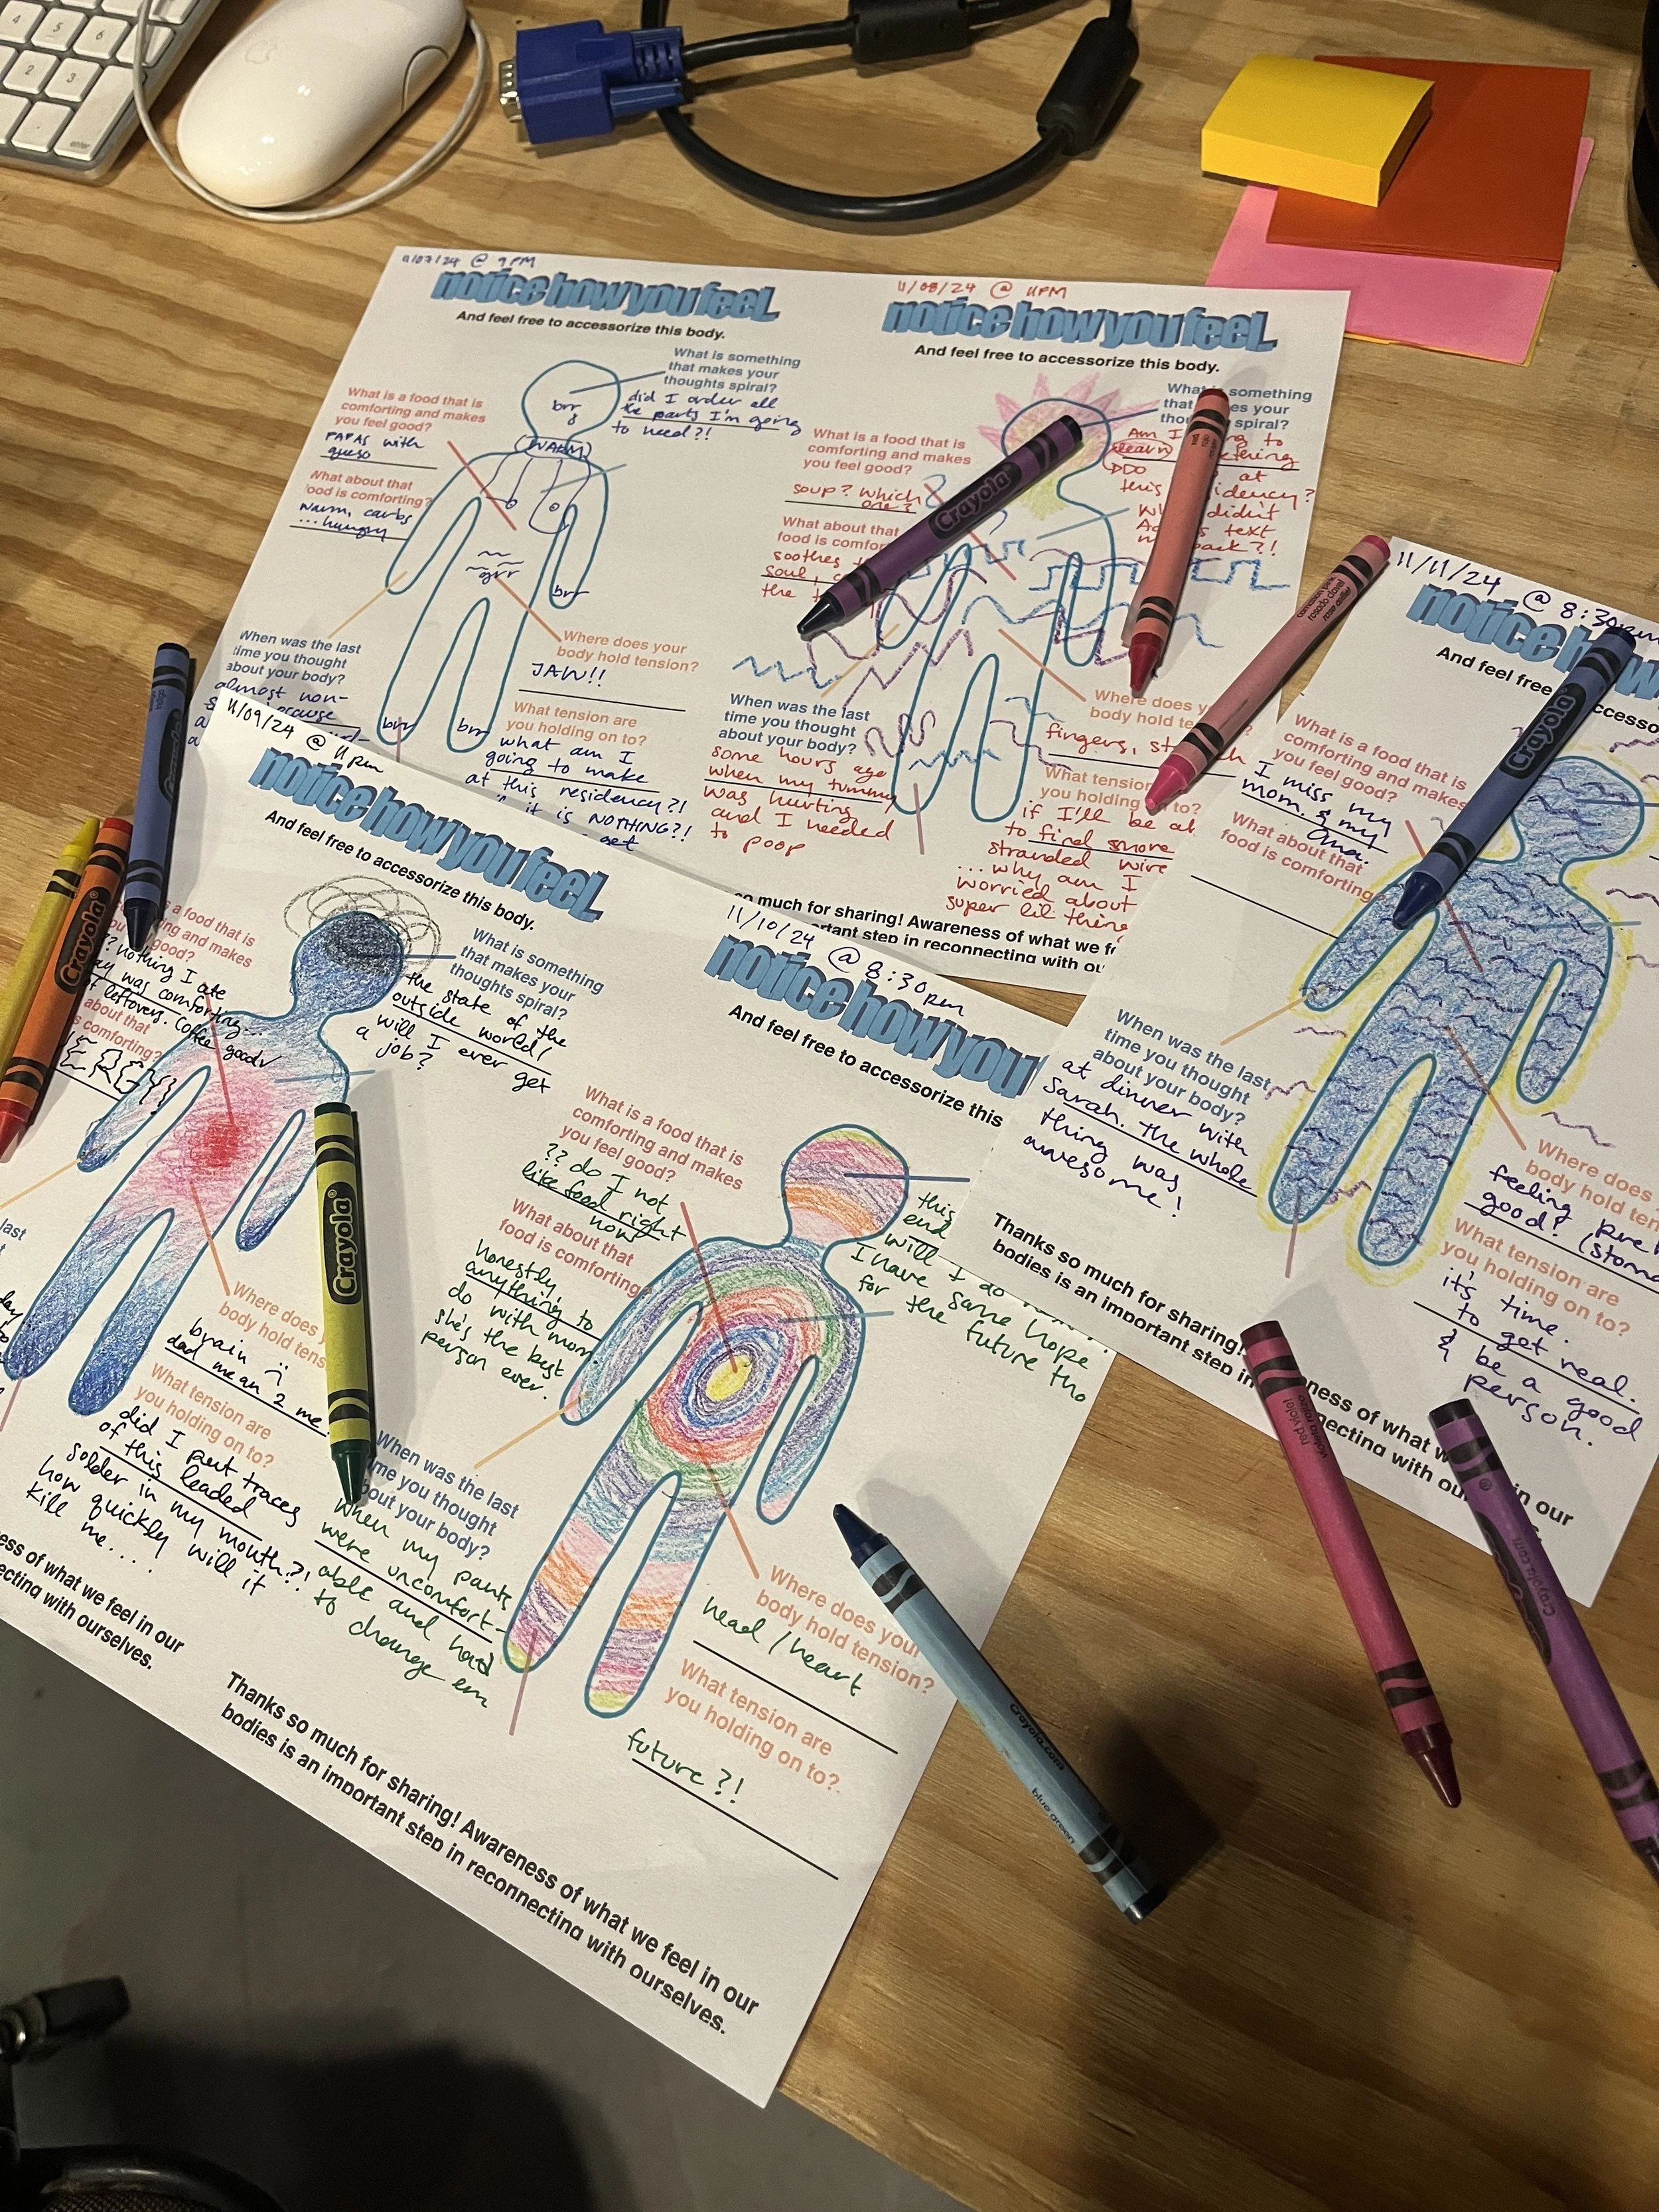 4
5
6
2
3
enter
11/07/24 @ 9PM
notice how you feel
And feel free to accessorize this body.
What is something
that makes your
thoughts spiral?
did I order all
the parts I'm going
to need?!
What is a food that is
comforting and makes
you feel good?
PAPAS with
queso
What about that
food is comforting?
warm, carbs
...hungry
brr
WARM
grr
brr
brr
brr
When was the last
time you thought
about your body?
almost non-
Where does your
body hold tension?
JAW!!
What tension are
you holding on to?
what am I
going to make
at this residency?!
it is NOTHING?!
get
11/08/24 @ 11PM
notice how you feel
And feel free to accessorize this body.
What is something
that makes your
thoughts spiral?
Am I to
learn
at
this residency?
Why didn't
text
back?!
What is a food that is
comforting and makes
you feel good?
soup? which
one?
What about that
food is comforting?
soothes
soul,
the
When was the last
time you thought
about your body?
some hours ago
when my tummy
was hurting
and I needed
to poop
Where does your
body hold tension?
fingers,
What tension are
you holding on to?
if I'll be able
to find more
stranded wire
...why am I
worried about
super lil things
so much for sharing! Awareness of what we
important step in reconnecting with
11/09/24 @ 11pm
notice how you feel
And feel free to accessorize this body.
What is something
that makes your
thoughts spiral?
the state of the
outside world!
will I ever get
a job?
is a food that is
comforting and makes
you feel good?
?? nothing I ate
was comforting...
leftovers. Coffee good
about that
is comforting?
last
Where does
body hold tension
brain
dad mean 2 me
What tension are
you holding on to?
did I put traces
of this leaded
solder in my mouth?!
how quickly will it
kill me....
of what we feel in our
with ourselves.
11/10/24 @ 8:30pm
notice how you
And feel free to accessorize this
What is a food that is
comforting and makes
you feel good?
?? do I not
like food right
now
What about that
food is comforting
honestly
anything to
do with mom.
she's the best
person ever.
this
end
will I do
I have some hope
for the future tho
When was the last
time you thought
about your body?
when my pants
were uncomfort-
able and had
to change em
Where does your
body hold tension?
head/heart
What tension are
you holding on to?
future?!
Thanks so much for sharing! Awareness of what we feel in our
bodies is an important step in reconnecting with ourselves.
11/11/24 @ 8:30pm
notice how
And feel free
What is a food that is
comforting and makes
you feel good?
I miss my
mom. & my
What about that
food is comforting?
When was the last
time you thought
about your body?
at dinner with
Sarah. the whole
thing was
awesome!
Where does
body hold
feeling
good?
What tension are
you holding on to?
it's time.
to get real.
& be a good
person.
Thanks so much for sharing!
bodies is an important step in
of what
with
in our
Crayola
Crayola
Crayola
Crayola
Crayola.com
blue green
red violet
Crayola.com